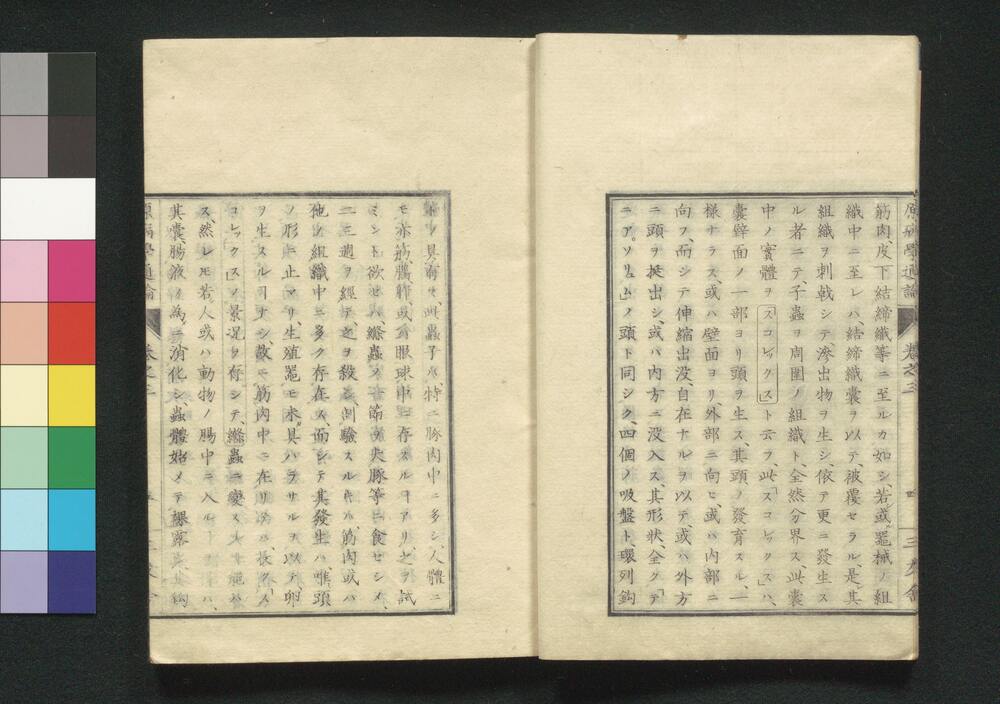 原病學通論 卷之三 四 三友舍
筋肉、皮下結締織等ニ至ルカ如シ、若或器械ノ組
織中ニ至レハ結締織囊ヲ以テ、被覆セラル、是其
組織ヲ刺戟シテ、滲出物ヲ生シ、依テ更ニ發生ス
ル者ニテ、子蟲ヲ周圍ノ組織ト、全然分界ス、此囊
中ノ實體ヲ「スコレックス」ト云フ、此「スコレックス」ハ、
囊壁面ノ一部ヨリ頭ヲ生ス、其頭ノ發育スル、一
樣ナラス、或ハ壁面ヨリ外部ニ向ヒ、或ハ内部ニ
向フ、而シテ伸縮出没、自在ナルヲ以テ、或ハ外方
ニ頭ヲ挺出シ、或ハ内方ニ没入ス、其形狀、全ク「テ
ニア、ソリュム」ノ頭ト同シク、四個ノ吸盤ト、環列鈎
ノ具有ス、此蟲子ハ、特ニ豚肉中ニ多シ、人體ニ
モ亦筋、腦髓、或ハ眼球中ニ存スルヿアリ、之ヲ試
ミント欲セハ、絛蟲ノ節ヲ犬豚等ニ食セシメ、
二三週ヲ經テ、之ヲ殺シ、測驗スルキハ、筋肉或ハ
他ノ組織中ニ多ク存在ス、而シテ其發生ハ、唯頭
ノ形ニ止マリ、生殖器モ未具ハラサルヲ以テ、卵
ヲ生スルヿナシ、故ニ筋肉中ニ在リテハ、長ク「ス
コレックス」ノ景況ヲ存シテ、絛蟲ニ變スル
ス、然レモ若、人或ハ動物ノ腸中ニ入ルヿハ、
其囊、腸液ノ為ニ消化シ、蟲體始メテ裸露シ、其鈎
原病學通論 卷之三